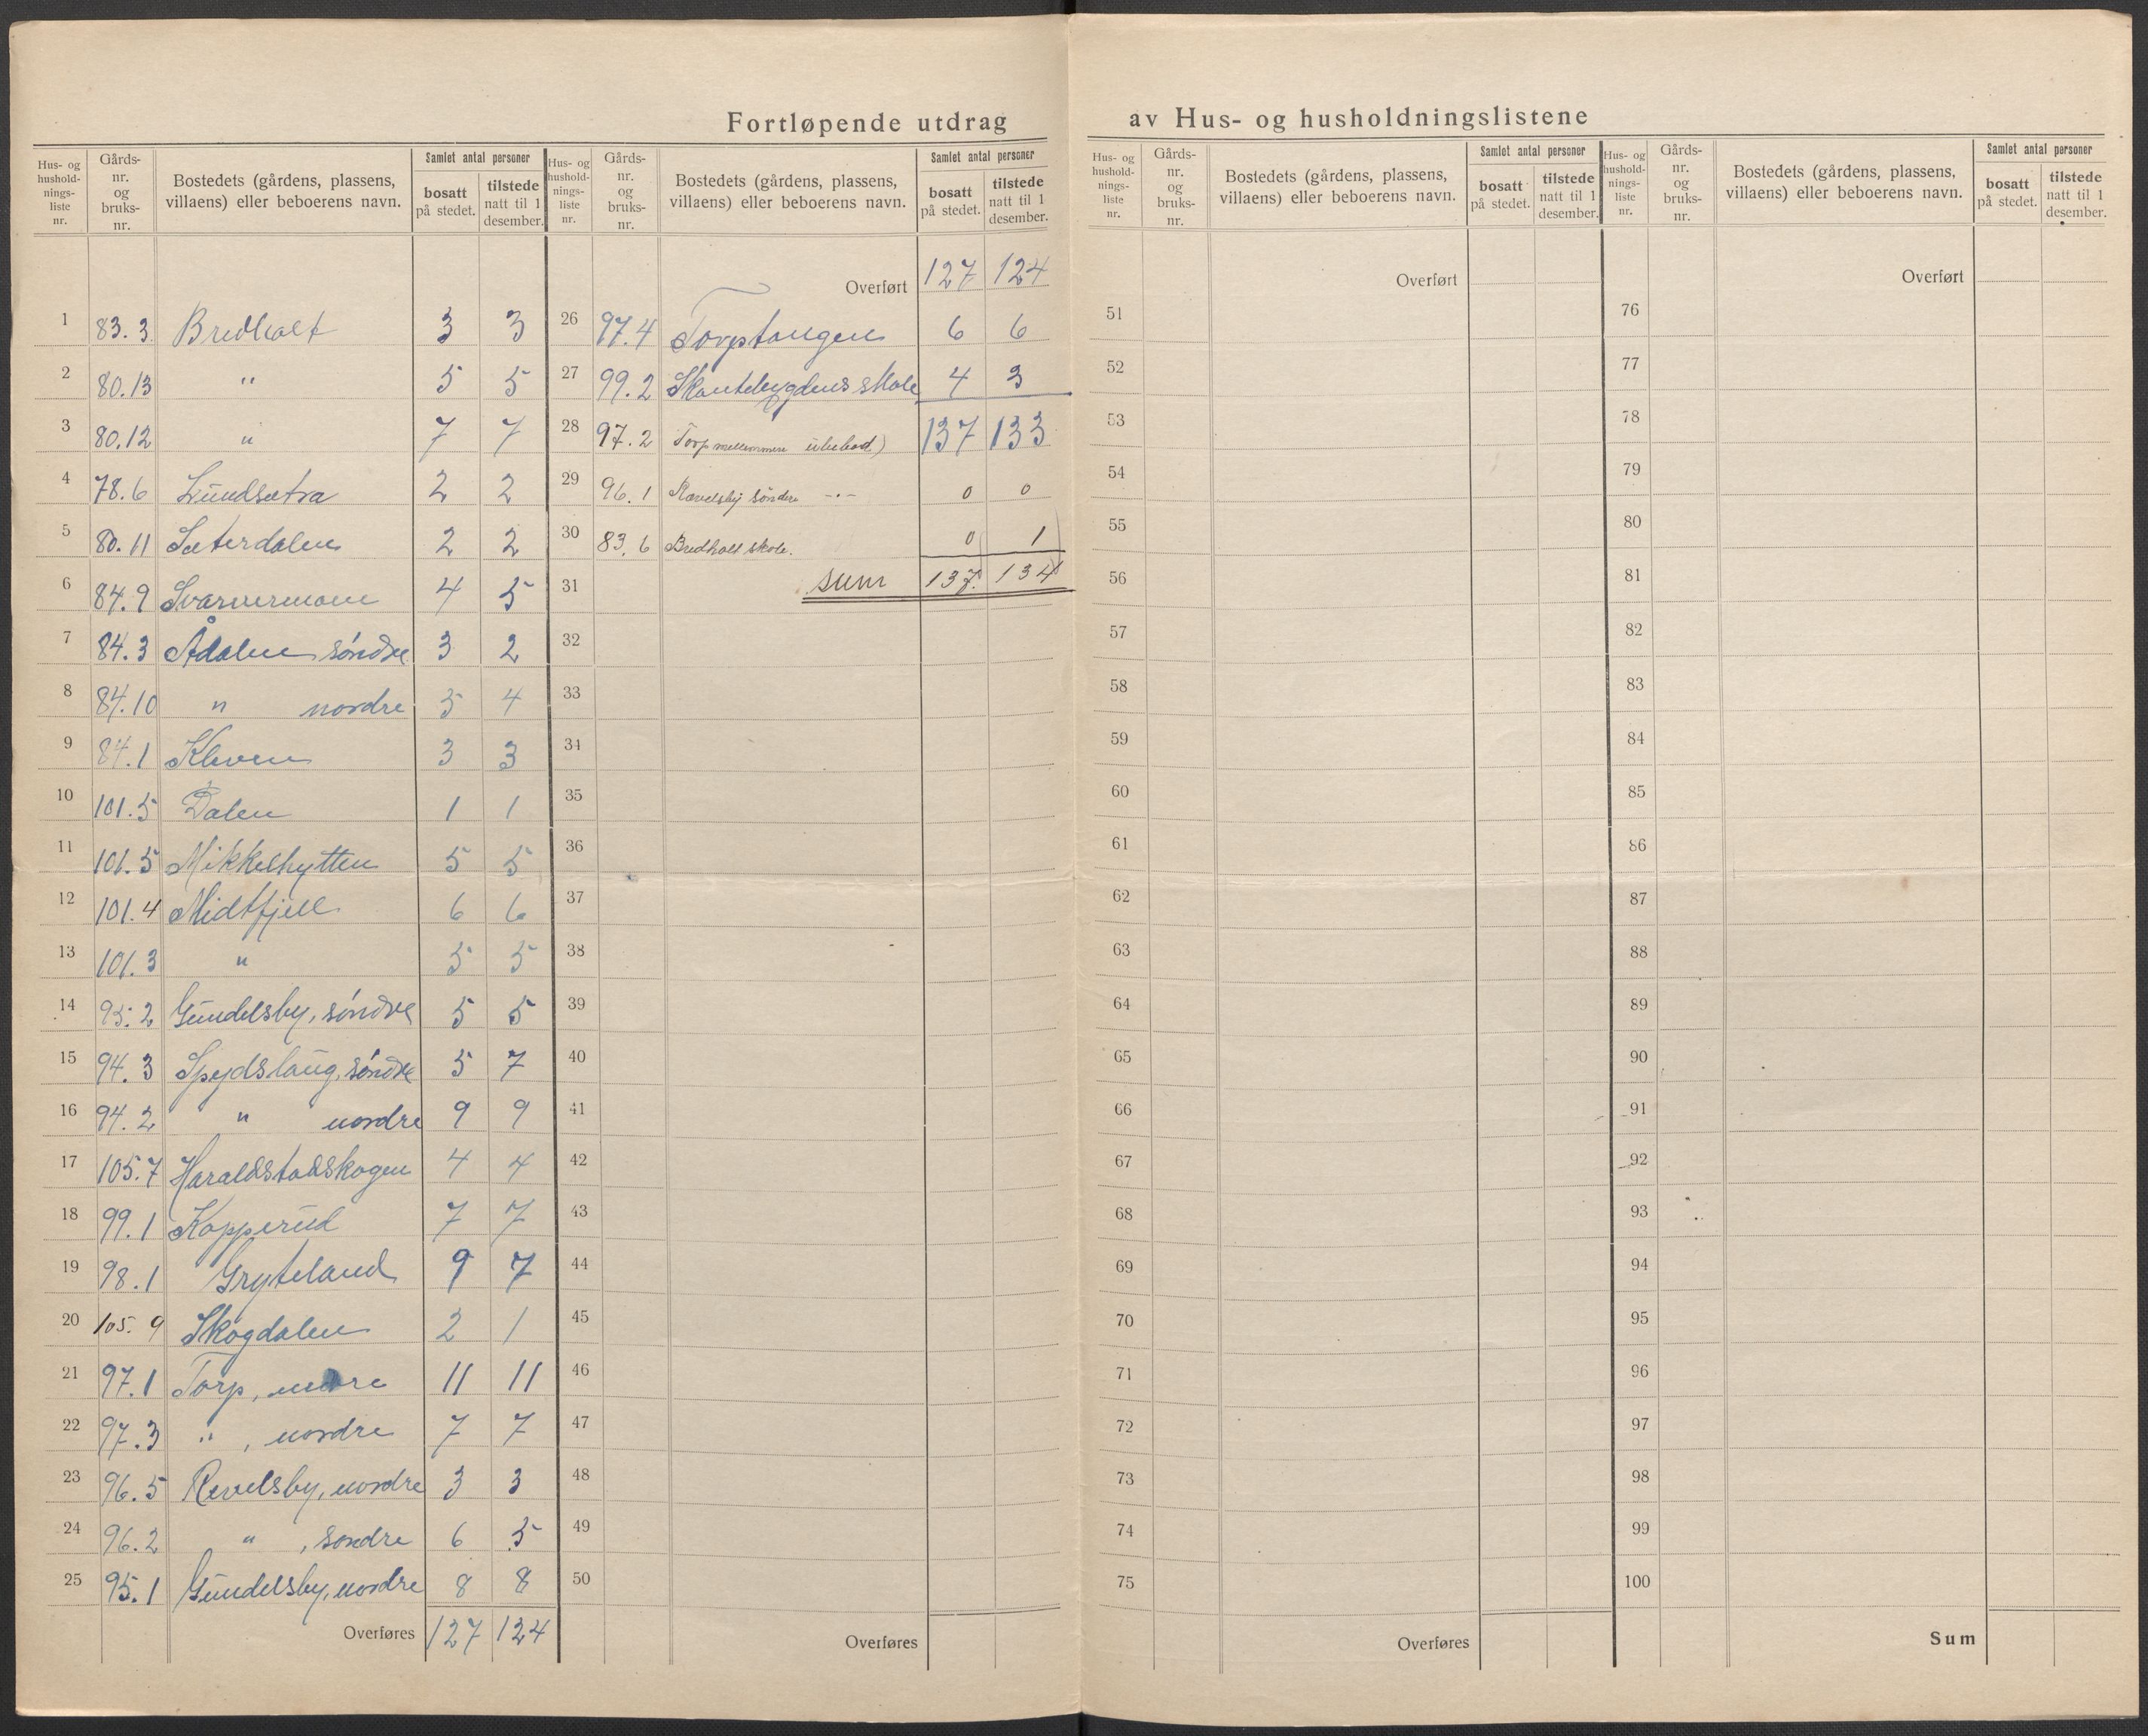 Fortløpende utdrag av Hus- og husholdningslistene
Hus- og hushold-nings-liste nr. | Gårds-nr. og bruks-nr. | Bostedets (gårdens, plassens, villaens) eller beboerens navn. | Samlet antal personer | bosatt på stedet. | tilstede natt til 1 desember.
1 83.3 Bredholt 3 3
2 80.13 " 5 5
3 80.12 " 7 7
4 78.6 Lundsætra 2 2
5 80.11 Sæterdalen 2 2
6 84.9 Svarvermoen 4 5
7 84.3 Ådalen søndre 3 2
8 84.10 " nordre 5 4
9 84.1 Kleven 3 3
10 101.5 Dalen 1 1
11 101.5 Mikkelhytten 5 5
12 101.4 Midtfjell 6 6
13 101.3 " 5 5
14 95.2 Gundelsby, søndre 5 5
15 94.3 Spydslaug, søndre 5 7
16 94.2 " nordre 9 9
17 105.7 Haraldstadskogen 4 4
18 99.1 Kopperud 7 7
19 98.1 Gryteland 9 7
20 105.9 Skogdalen 2 1
21 97.1 Torp, 11 11
22 97.3 " , nordre 7 7
23 96.5 Revelsby, nordre 3 3
24 96.2 " , søndre 6 5
25 95.1 Gundelsby, nordre 8 8
Overføres 127 124
Hus- og hushold-nings-liste nr. | Gårds-nr. og bruks-nr. | Bostedets (gårdens, plassens, villaens) eller beboerens navn. | Samlet antal personer | bosatt på stedet. | tilstede natt til 1 desember.
Overført 127 124
26 97.4 Torptangen 6 6
27 99.2 Skautebygdens skole 4 3
28 97.2 Torp mellommere ubebod) 137 133
29 96.1 Rævelsby søndre -"- 0 0
30 83.6 Bredholt skole. 0 1
31 sum 137. 134
32
33
34
35
36
37
38
39
40
41
42
43
44
45
46
47
48
49
50
Overføres
Hus- og hushold-nings-liste nr. | Gårds-nr. og bruks-nr. | Bostedets (gårdens, plassens, villaens) eller beboerens navn. | Samlet antal personer | bosatt på stedet. | tilstede natt til 1 desember.
Overført
51
52
53
54
55
56
57
58
59
60
61
62
63
64
65
66
67
68
69
70
71
72
73
74
75
Overføres
Hus- og hushold-nings-liste nr. | Gårds-nr. og bruks-nr. | Bostedets (gårdens, plassens, villaens) eller beboerens navn. | Samlet antal personer | bosatt på stedet. | tilstede natt til 1 desember.
Overført
76
77
78
79
80
81
82
83
84
85
86
87
88
89
90
91
92
93
94
95
96
97
98
99
100
Sum